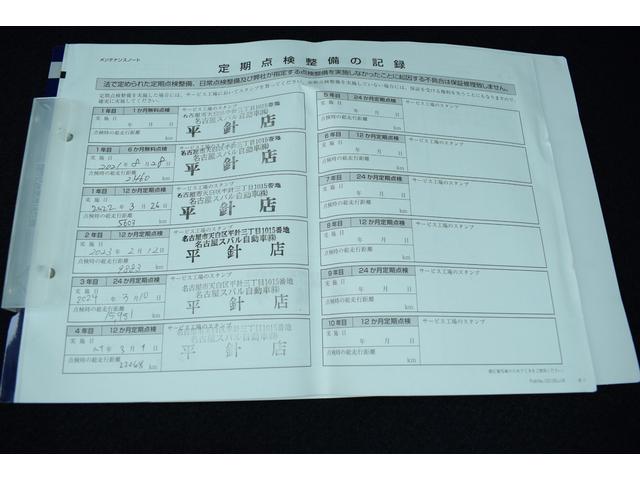 メンテナンスノート
定期点検整備の記録
法で定められた定期点検整備、日常点検整備及び弊社が指定する点検整備を実施しなかったことに起因する不具合は保証修理致しません。
1年目 1か月無料点検
サービス工場のスタンプ
実施日
年 月 日
点検時の総走行距離
km
名古屋市天白区平針三丁目1015番地
名古屋スバル自動車㈱
平針店
1年目 6か月無料点検
サービス工場のスタンプ
実施日
2021年8月28日
点検時の総走行距離
km
名古屋市天白区平針三丁目1015番地
名古屋スバル自動車㈱
平針店
1年目 12か月定期点検
サービス工場のスタンプ
実施日
2022年3月26日
点検時の総走行距離
5603 km
名古屋市天白区平針三丁目1015番地
名古屋スバル自動車㈱
平針店
2年目 12か月定期点検
サービス工場のスタンプ
実施日
2023年2月12日
点検時の総走行距離
km
名古屋市天白区平針三丁目1015番地
名古屋スバル自動車㈱
平針店
3年目 24か月定期点検
サービス工場のスタンプ
実施日
2024年3月10日
点検時の総走行距離
15951 km
名古屋市天白区平針三丁目1015番地
名古屋スバル自動車㈱
平針店
4年目 12か月定期点検
サービス工場のスタンプ
実施日
年3月9日
点検時の総走行距離
22068 km
名古屋市天白区平針三丁目1015番地
名古屋スバル自動車㈱
平針店
5年目 24か月定期点検
サービス工場のスタンプ
実施日
年 月 日
点検時の総走行距離
km
6年目 12か月定期点検
サービス工場のスタンプ
実施日
年 月 日
点検時の総走行距離
km
7年目 24か月定期点検
サービス工場のスタンプ
実施日
年 月 日
点検時の総走行距離
km
8年目 12か月定期点検
サービス工場のスタンプ
実施日
年 月 日
点検時の総走行距離
km
9年目 24か月定期点検
サービス工場のスタンプ
実施日
年 月 日
点検時の総走行距離
km
10年目 12か月定期点検
サービス工場のスタンプ
実施日
年 月 日
点検時の総走行距離
km